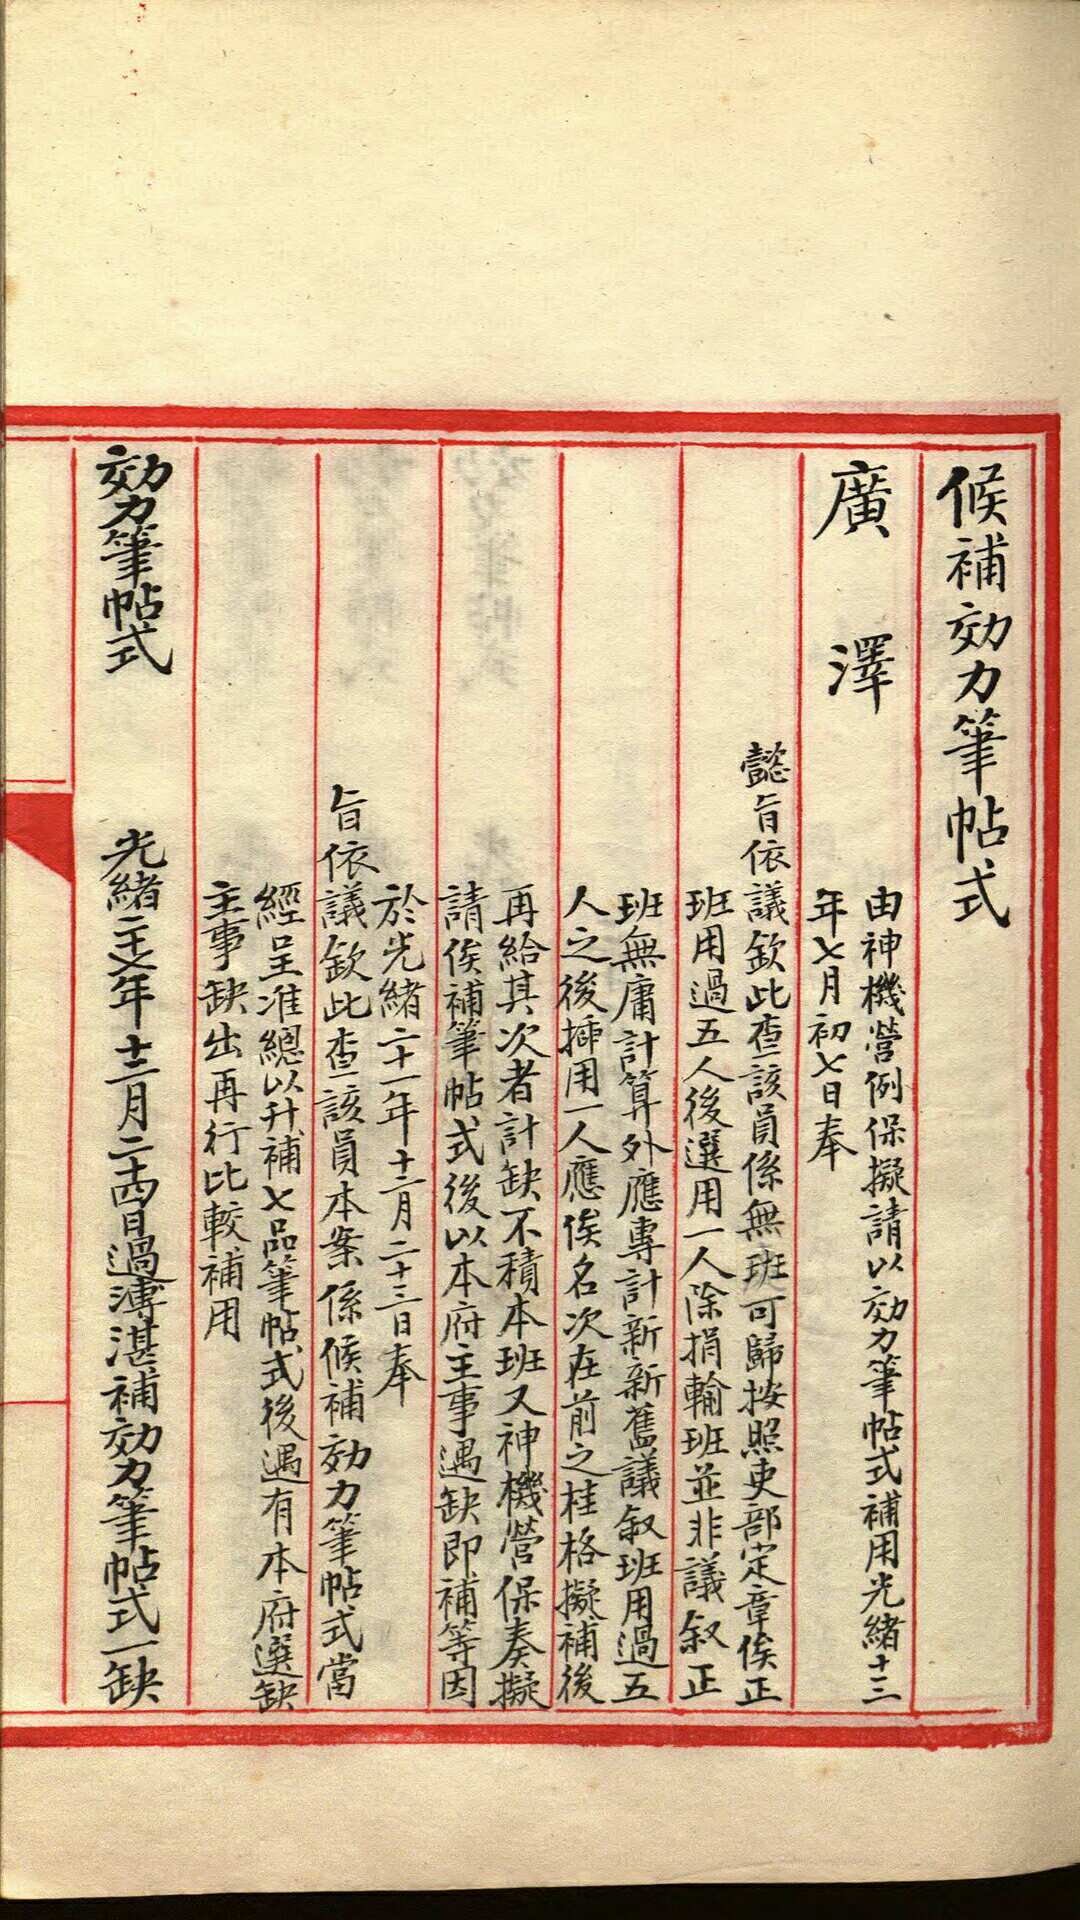 候補効力筆帖式
廣澤
由神機營例保擬請以効力筆帖式補用光緒十三
年七月初七日奉
懿旨依議欽此查該員係無班可歸按照吏部定章俟正
班用過五人後選用一人除捐輸班並非議敘正
班無庸計算外應專計新新舊議敘班用過五
人之後插用一人應俟名次在前之桂格擬補後
再給其次者計缺不積本班又神機營保奏擬
請俟補筆帖式後以本府主事遇缺即補等因
於光緒二十一年十二月二十三日奉
旨依議欽此查該員本案係候補効力筆帖式當
經呈准總以升補七品筆帖式後遇有本府選缺
主事缺出再行比較補用
効力筆帖式
光緒二十七年十二月二十四日過溥湛補効力筆帖式一缺